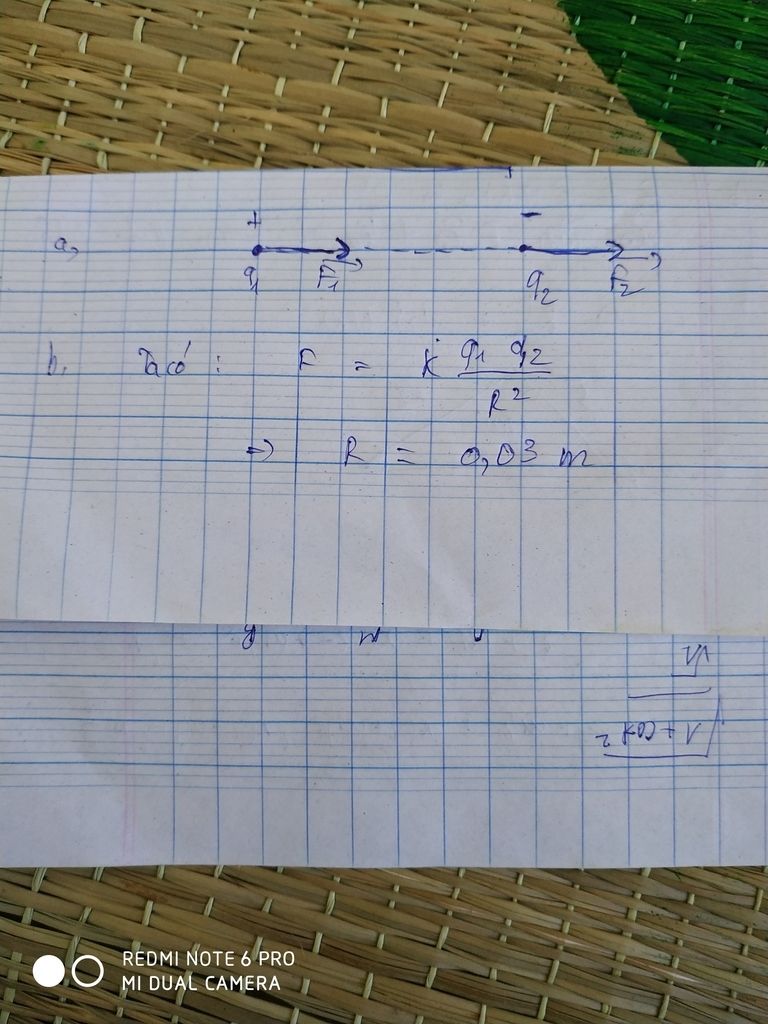 + -
a,
q1 F1 q2 F2
b. Ta có : F = k q1 q2
R²
=> R = 0,03 m
√1 + cot²
REDMI NOTE 6 PRO
MI DUAL CAMERA